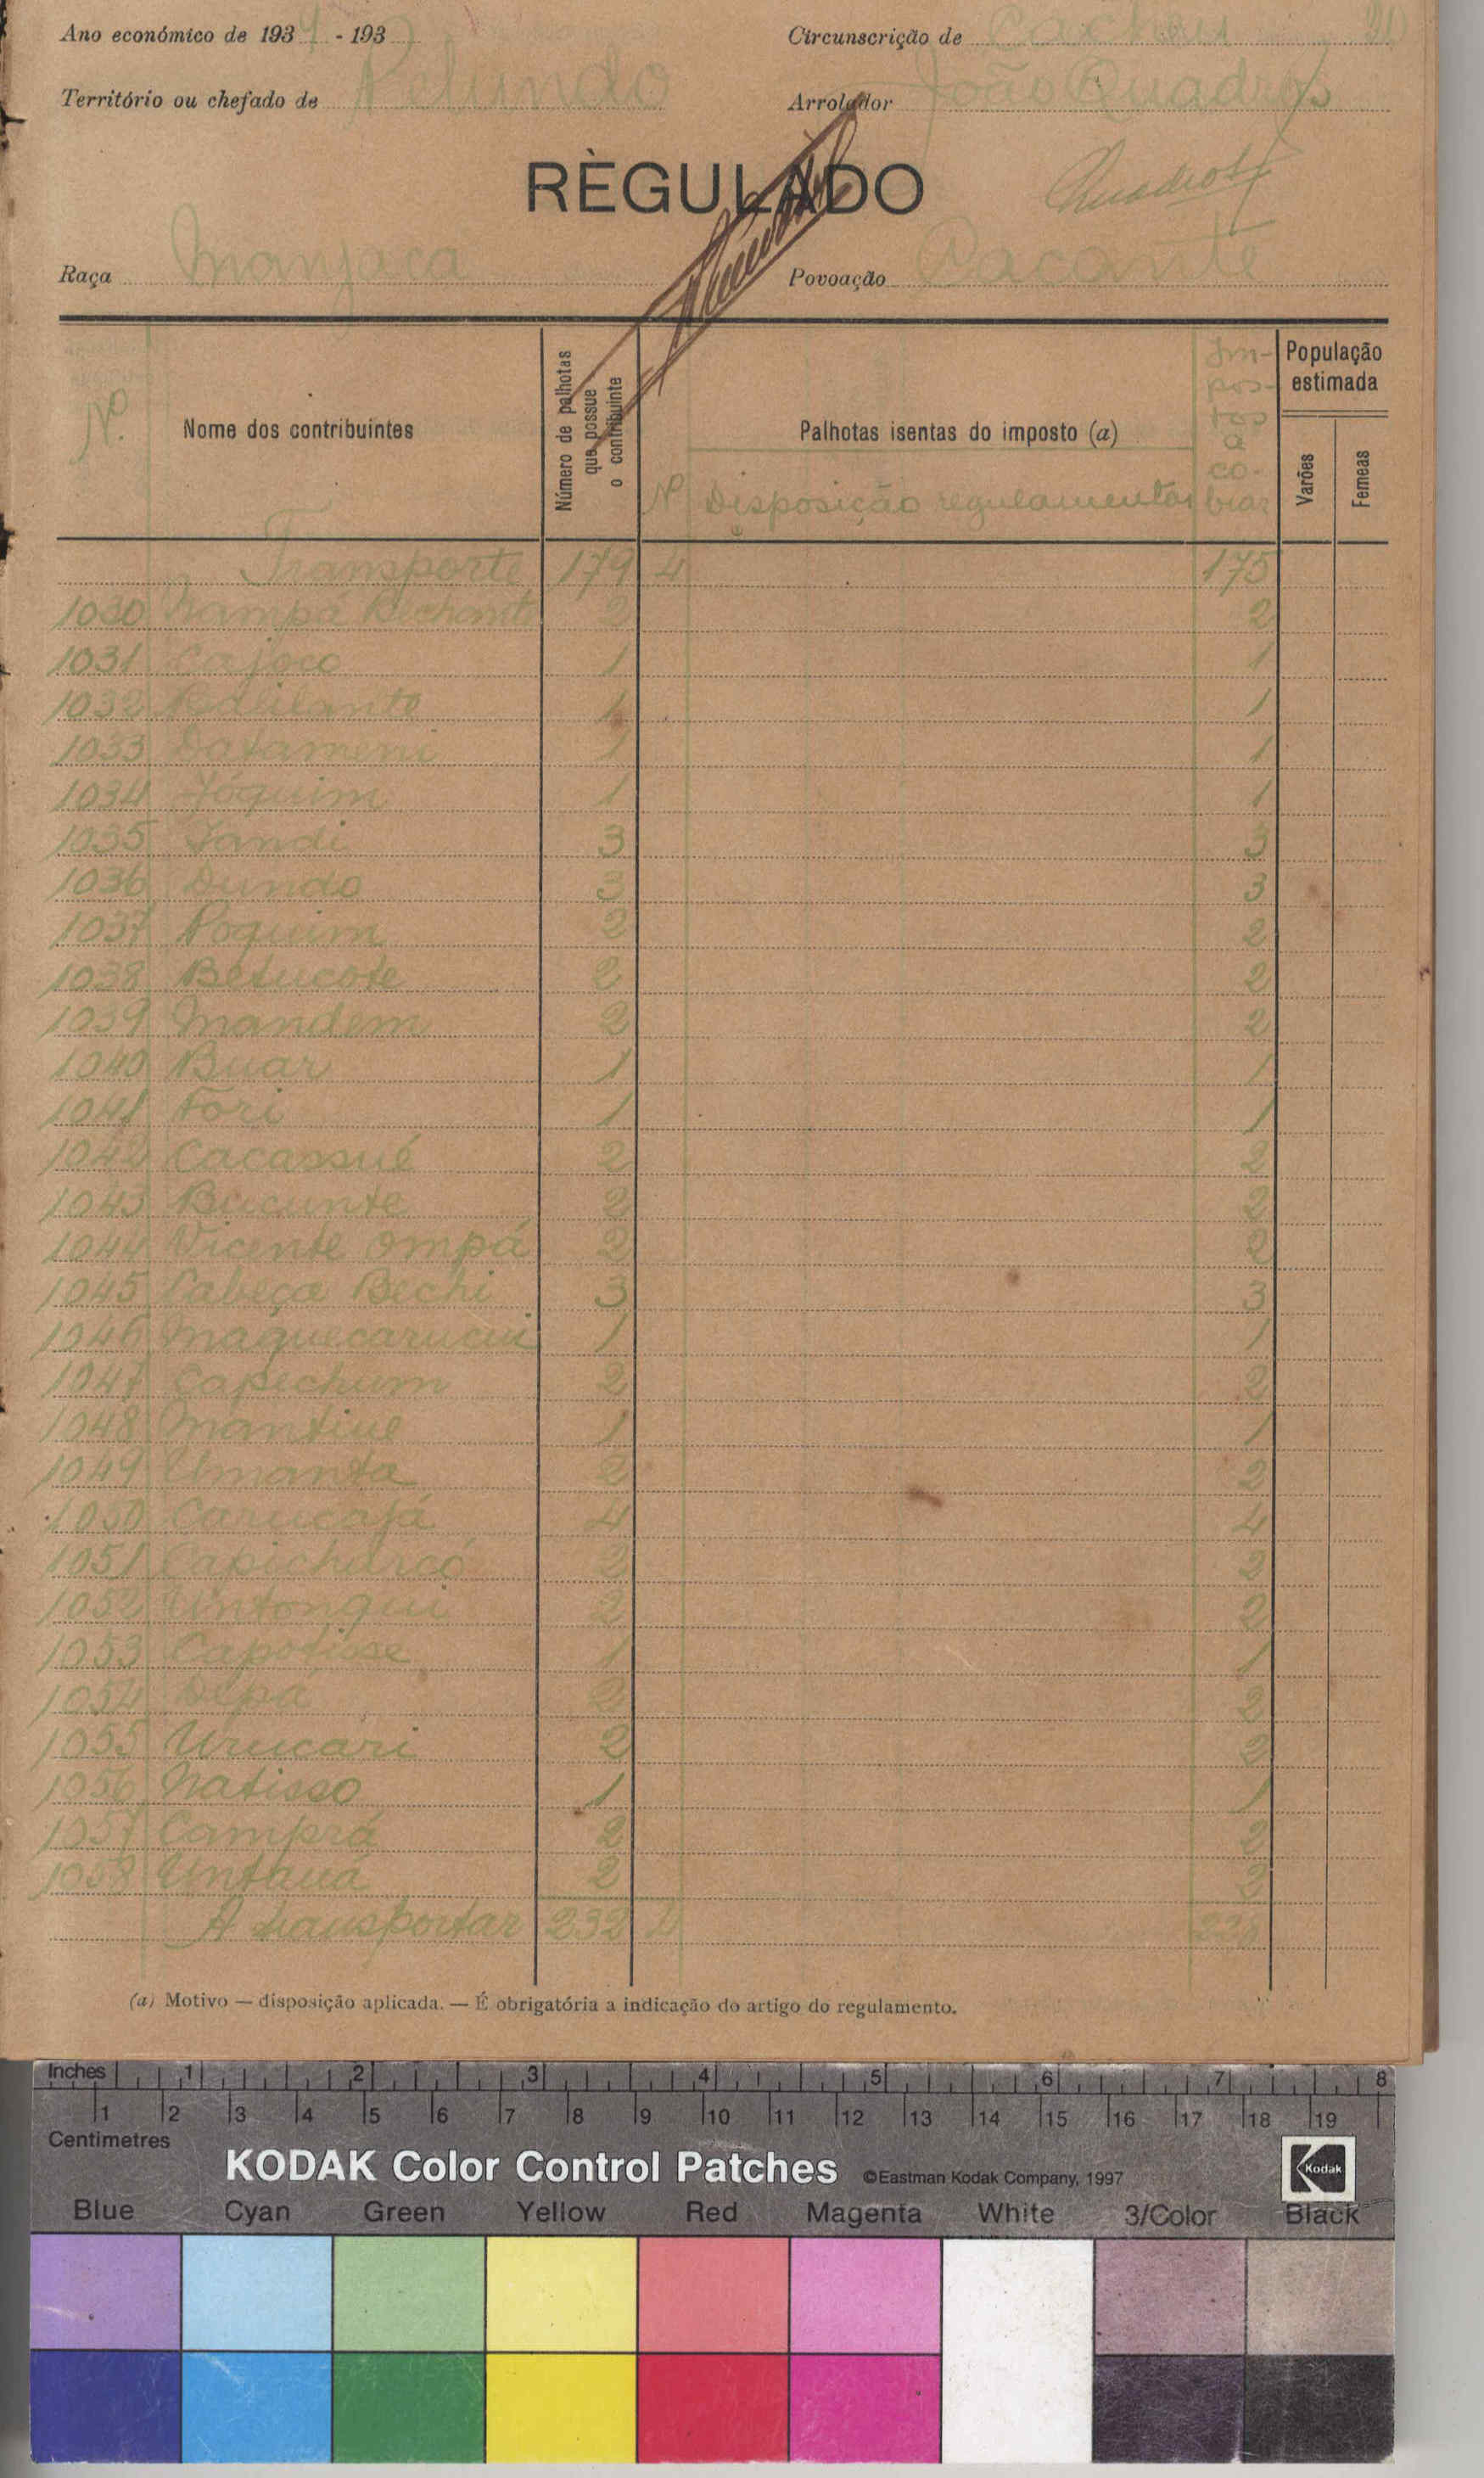 Ano económico de 1934 - 193
Circunscrição de Cacheu 31
Território ou chefado de Pelundo
Arrolador João Quadros
RÈGULADO
Quadros
Raça Manjaca
Povoação Cacante
Nº
Nome dos contribuintes
Número de palhotas que possue o contribuinte
Palhotas isentas do imposto (a)
Nº Disposição regulamentar
Impostos a cobrar
População estimada
Varões
Femeas
Transporte 179 4 175
1030 Nampá 2 2
1031 Cajoco 1 1
1032 1 1
1033 Datameni 1 1
1034 Jóquim 1 1
1035 Jandi 3 3
1036 Dundo 3 3
1037 Poquim 2 2
1038 Betucote 2 2
1039 Mandem 2 2
1040 Buar 1 1
1041 Fori 1 1
1042 Cacassué 2 2
1043 Bucunte 2 2
1044 Vicente Ompá 2 2
1045 Cabeça Bechi 3 3
1046 1 1
1047 Capechum 2 2
1048 Mantiue 1 1
1049 Umanta 2 2
1050 Carucafá 4 4
1051 2 2
1052 Untongui 2 2
1053 Capotisse 1 1
1054 Depá 2 2
1055 Urucari 2 2
1056 Natisso 1 1
1057 Camprá 2 2
1058 Untauá 2 2
A transportar 232 4 228
(a) Motivo — disposição aplicada. — É obrigatória a indicação do artigo do regulamento.
Inches 1 2 3 4 5 6 7 8
1 2 3 4 5 6 7 8 9 10 11 12 13 14 15 16 17 18 19
Centimetres
KODAK Color Control Patches ©Eastman Kodak Company, 1997 Kodak
Blue Cyan Green Yellow Red Magenta White 3/Color Black